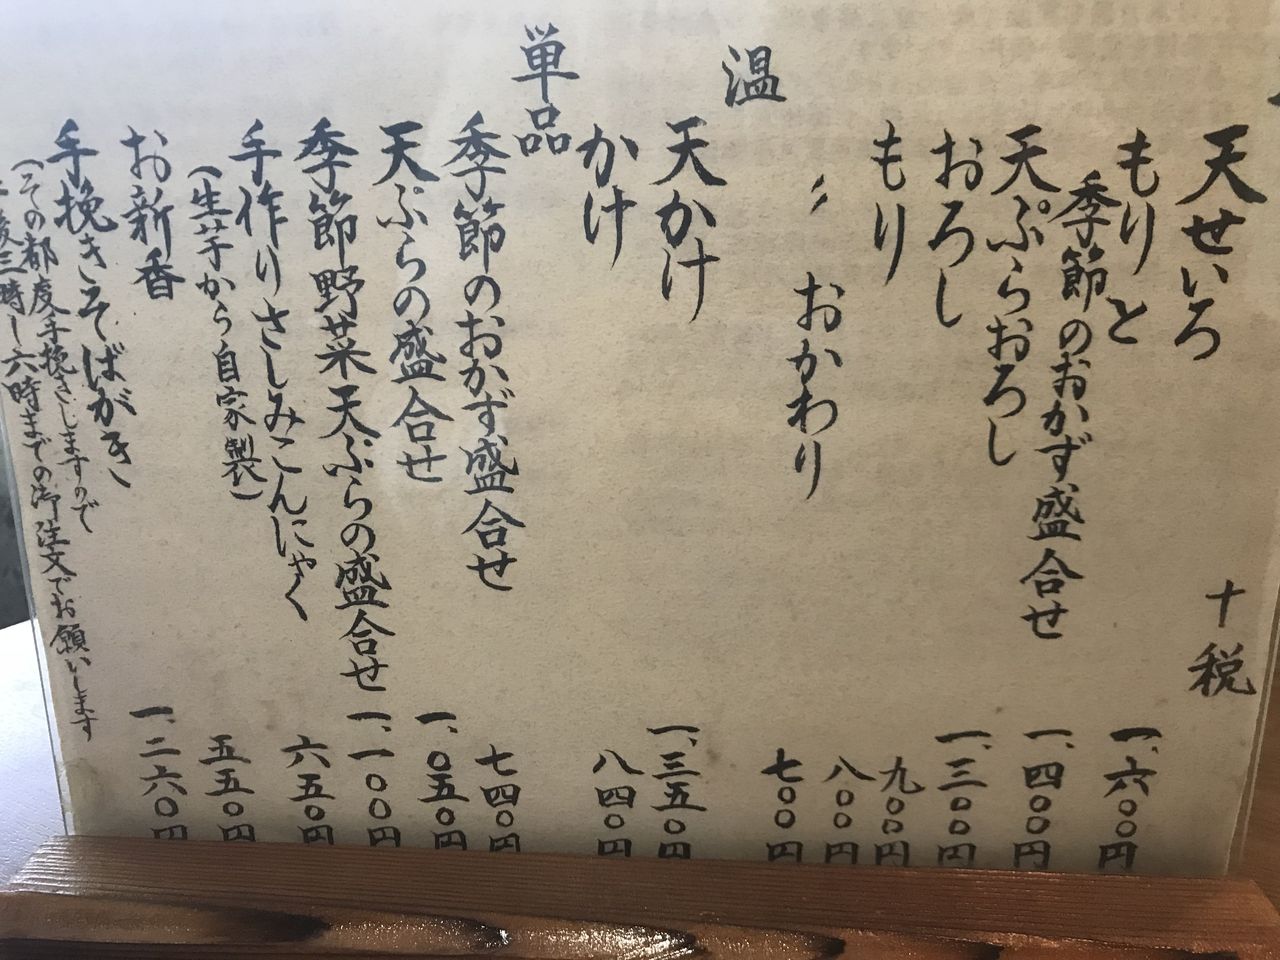 十税
天せいろ 一、六〇〇円
もりと
季節のおかず盛合せ 一、四〇〇円
天ぷらおろし 一、三〇〇円
おろし 九〇〇円
もり 八〇〇円
〃 おかわり 七〇〇円
温
天かけ 一、三五〇円
かけ 八四〇円
単品
季節のおかず盛合せ 七四〇円
天ぷらの盛合せ 一、〇五〇円
季節野菜天ぷらの盛合せ 一、一〇〇円
手作りさしみこんにゃく 六五〇円
(生芋から自家製)
お新香 五五〇円
手挽きそばがき 一、二六〇円
(その都度手挽きしますので
後三時〜六時までの御注文でお願いします